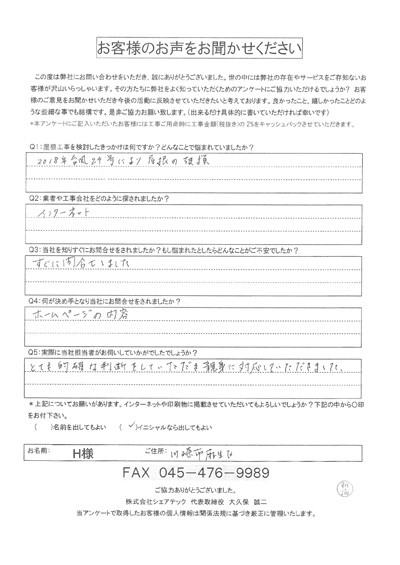 お客様のお声をお聞かせください
この度は弊社にお問い合わせをいただき、誠にありがとうございました。世の中には弊社の存在やサービスをご存知ないお
客様が沢山いらっしゃいます。その方たちに弊社をよく知っていただくためのアンケートにご協力いただけるでしょうか？ お客
様のご意見をお聞かせいただき今後の活動に反映させていただきたいと考えております。良かったこと、嬉しかったことどのよ
うな些細な事でも結構です。是非ご協力お願い致します。（出来るだけ具体的に書いていただければ幸いです）
*本アンケートにご記入いただいたお客様には工事ご用命時に工事金額(税抜き)の2%をキャッシュバックさせていただきます。
Q1:屋根工事を検討したきっかけは何ですか？どんなことで悩まれていましたか？
2018年台風24号により屋根の破損
Q2:業者や工事会社をどのように探されましたか？
インターネット
Q3:当社を知りすぐにお問合せをされましたか？もし悩まれたとしたらどんなことがご不安でしたか？
すぐに問合せしました
Q4:何が決め手となり当社にお問合せをされましたか？
ホームページの内容
Q5:実際に当社担当者がお伺いしていかがでしたでしょうか？
とても的確な判断をしていただき親身に対応していただきました。
* 上記についてお願いがあります。インターネットや印刷物に掲載させていただいてもよろしいでしょうか？下記の中から〇印
をお付下さい。
( )名前を出してもよい (✓)イニシャルなら出してもよい
お名前: H様 ご住所: 川崎市麻生区
FAX 045-476-9989
ご協力ありがとうございました。
株式会社シェアテック 代表取締役 大久保 誠二
当アンケートで取得したお客様の個人情報は関係法規に基づき厳正に管理いたします。